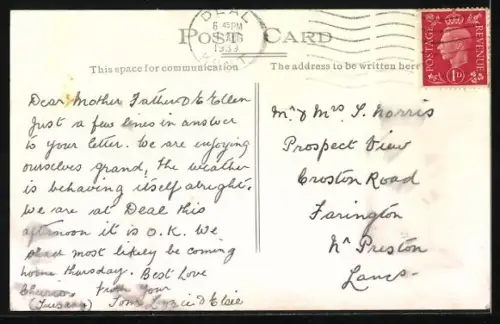 DEAL
6 45 PM
1939
KENT
POST CARD
POSTAGE REVENUE
1D
This space for communication
The address to be written here
Dear Mother Father & Ellen
Just a few lines in answer
to your letter. We are enjoying
ourselves grand, the weather
is behaving itself alright.
We are at Deal this
afternoon it is O.K. We
most likely be coming
home Thursday. Best Love
from your
(Tuesday) Tom Lizzie & Elsie
Mr & Mrs S. Norris
Prospect View
Croston Road
Farington
Nr Preston
Lancs